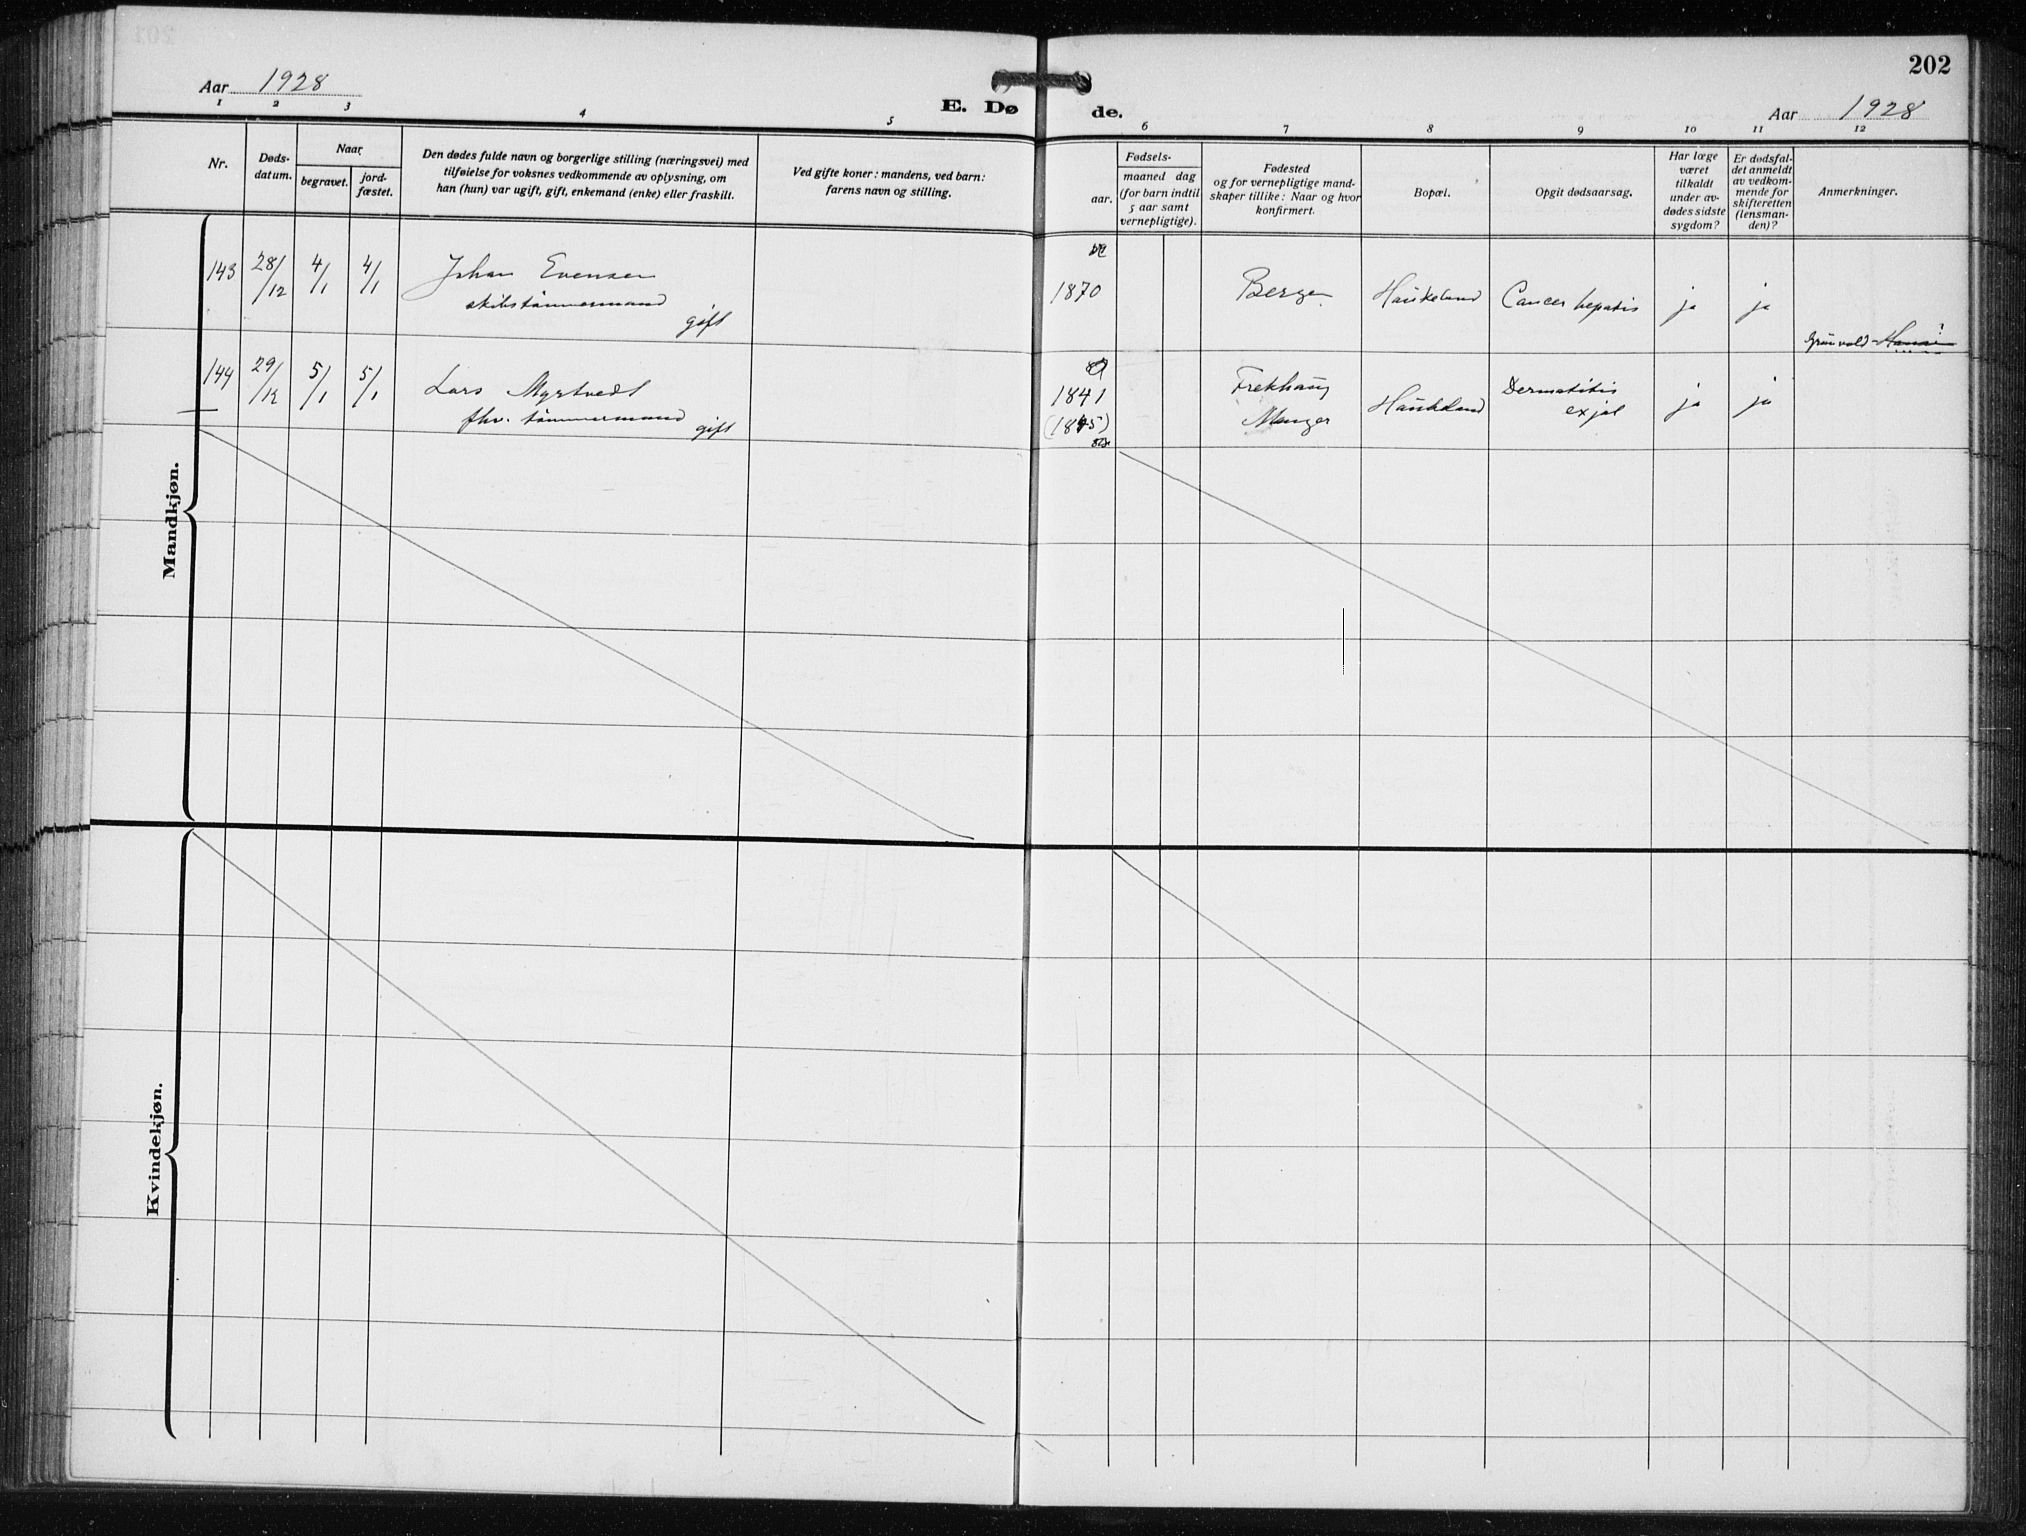 202
Aar 1928
E. Dø de.
Aar 1928
1 2 3 4 5 6 7 8 9 10 11 12
Nr.
Døds-
datum.
Naar
begravet.
jord-
fæstet.
Den dødes fulde navn og borgerlige stilling (næringsvei) med
tilføielse for voksnes vedkommende av oplysning, om
han (hun) var ugift, gift, enkemand (enke) eller fraskilt.
Ved gifte koner: mandens, ved barn:
farens navn og stilling.
Fødsels-
aar.
maaned dag
(for barn indtil
5 aar samt
vernepligtige).
Fødested
og for vernepligtige mand-
skaper tillike: Naar og hvor
konfirmert.
Bopæl.
Opgit dødsaarsag.
Har læge
været
tilkaldt
under av-
dødes sidste
sygdom?
Er dødsfal-
det anmeldt
av vedkom-
mende for
skifteretten
(lensman-
den)?
Anmerkninger.
Mandkjøn.
143 28/12 4/1 4/1 Johan Evensen
skibstømmermand
gift
1870 Bergen Haukeland Cancer hepatis ja ja
144 29/12 5/1 5/1 Lars Myrtvedt
fhv. tømmermand gift
1841
(1845)
Frekhaug
Manger
Haukeland
Dermatitis
exfol
ja ja
Kvindekjøn.
aar.